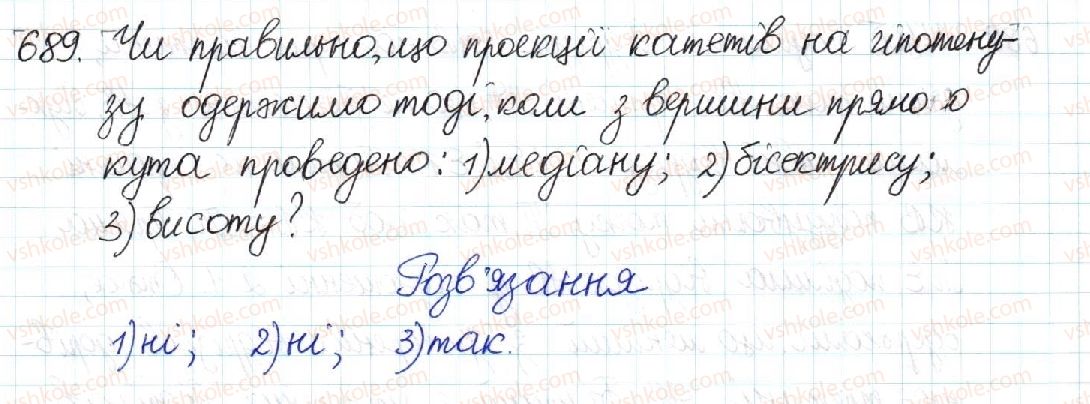 689. Чи правильно, що проекції катетів на гіпотену-
зу одержимо тоді, коли з вершини прямо о
кута проведено: 1) медіану; 2) бісектрису;
3) висоту?
Розв'язання
1) ні; 2) ні; 3) так.